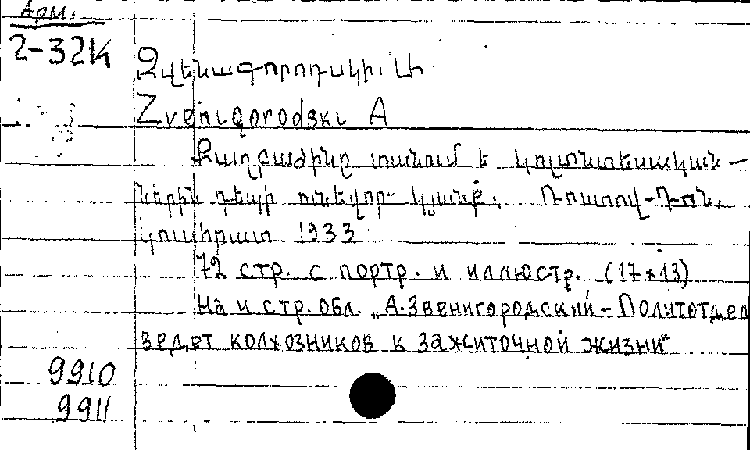 Арм.
2-32К
Զվենագորոդսկի. Ա
Zvenigorodski A
Քաղբաժինը տանում է կոլտնտեսական-
ներին դեպի ունեվոր կյանք. Ռոստով-Դոն.
1933
72 стр. с портр. и иллюстр. (17х13)
На IV стр. обл. „А. Звенигородский - Политотдел
ведет колхозников к зажиточной жизни"
9910
9911